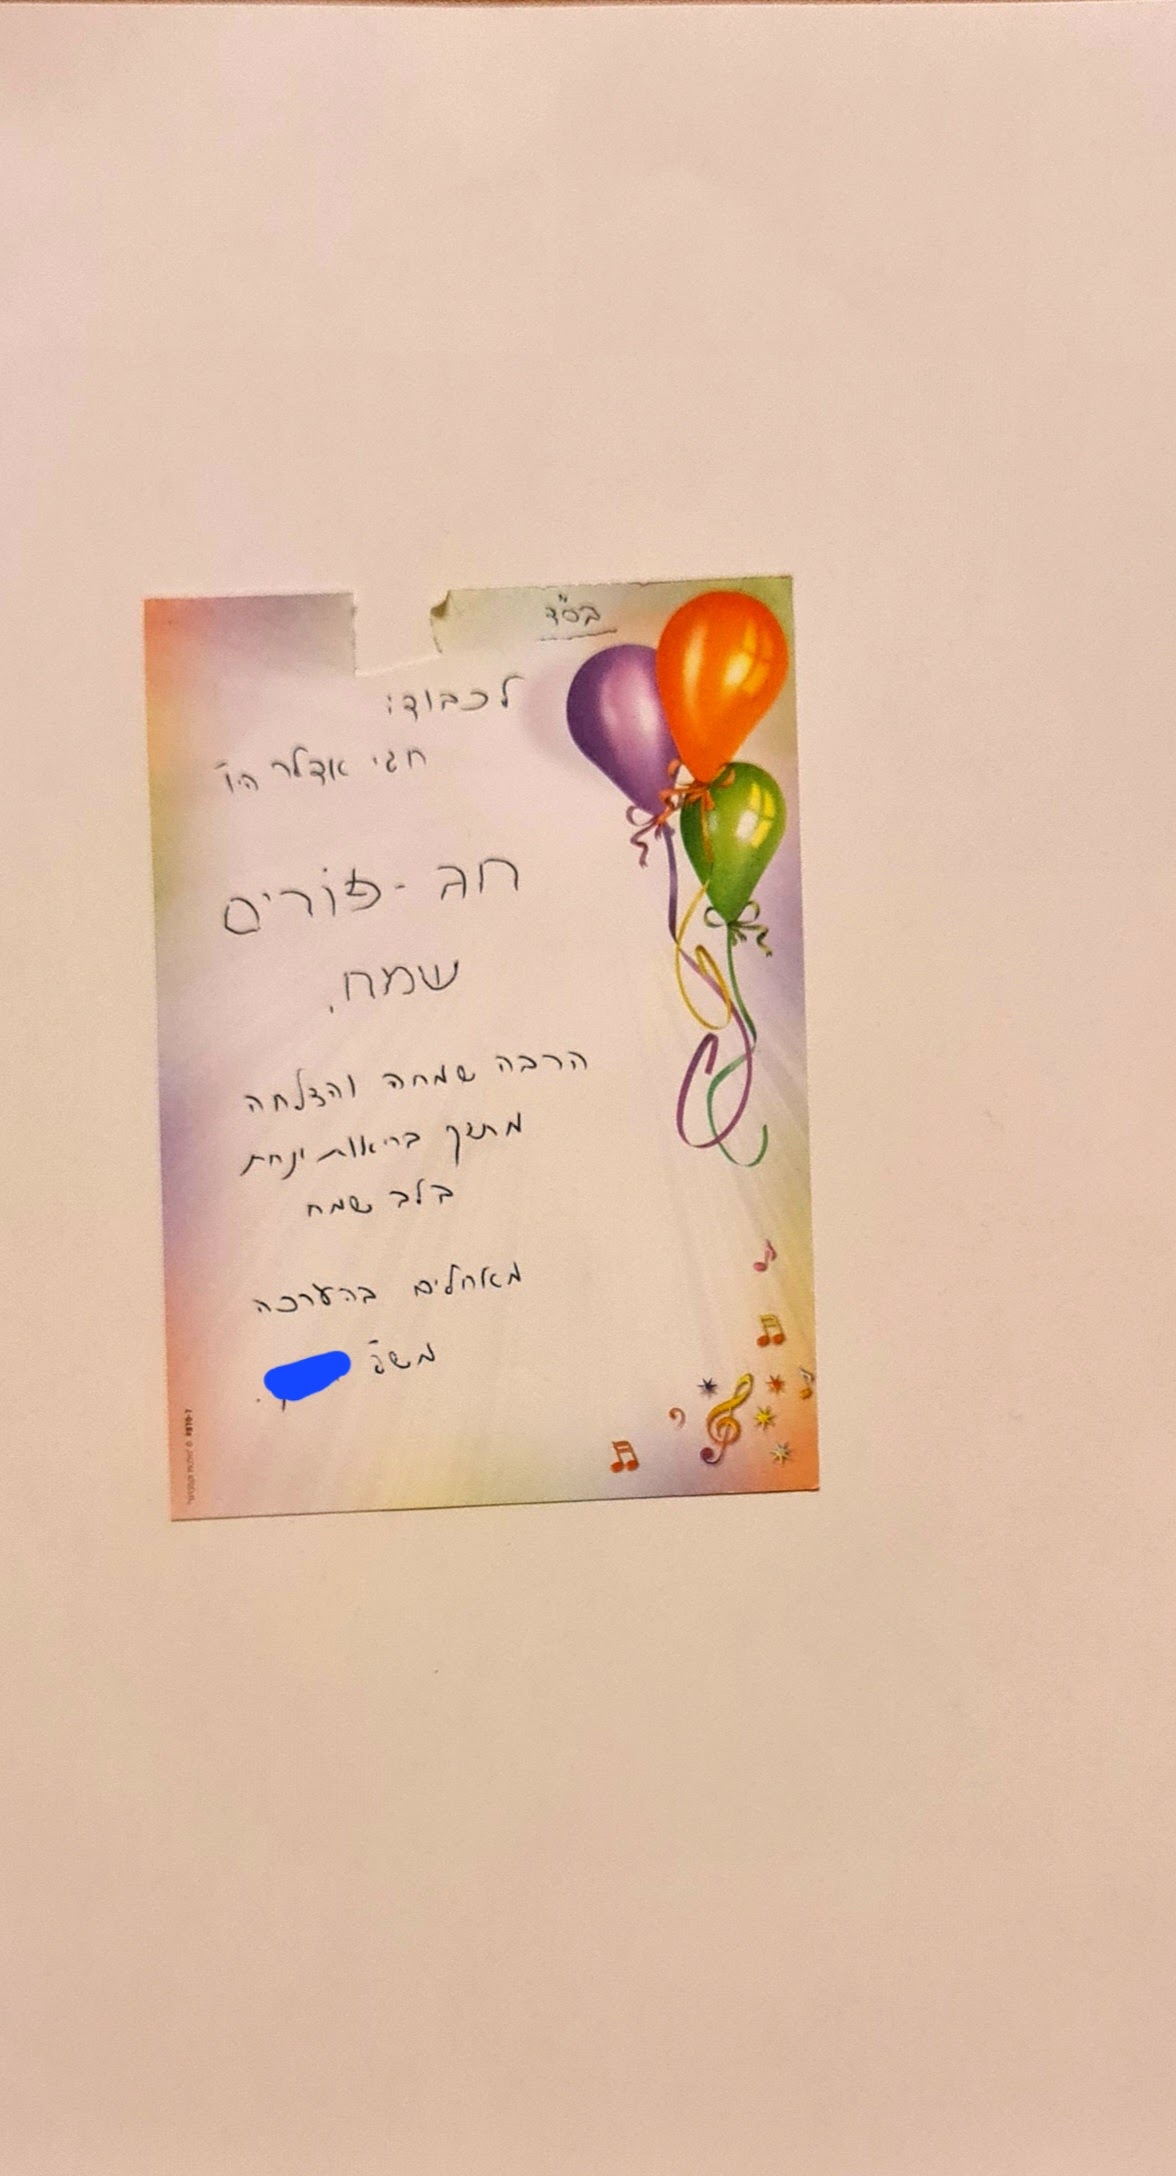 בס"ד
לכבוד:
חגי אדלר הי"ו
חג - פורים
שמח.
הרבה שמחה והצלחה
מתוך בריאות ונחת
בלב שמח
מאחלים בהערכה
משפ'